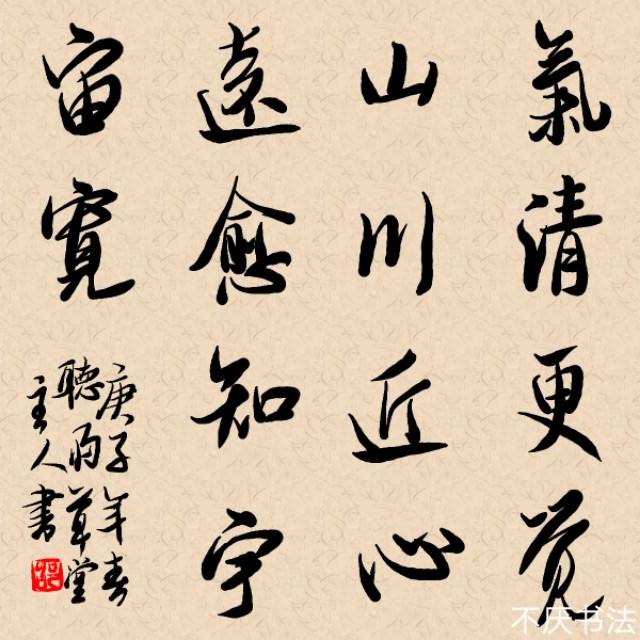 氣清更觉
山川近心
遠愈知宇
宙寬
庚子年春
聽雨草堂
主人書
不厌书法